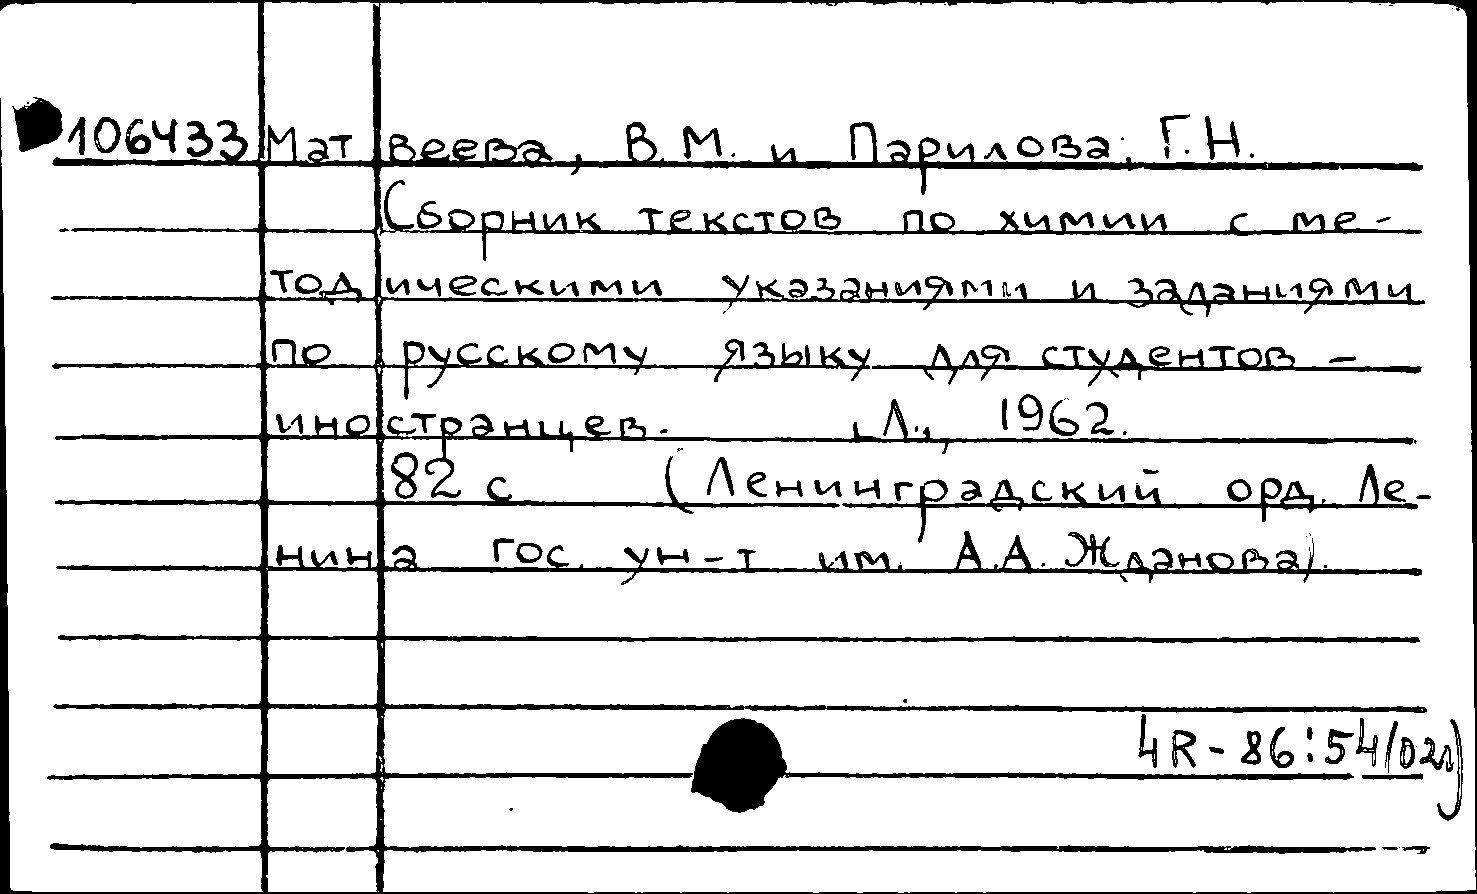 106433 Матвеева, В.М. и Парилова, Г.Н.
Сборник текстов по химии с ме-
тодическими указаниями и заданиями
по русскому языку для студентов -
иностранцев. [Л.], 1962.
82 с (Ленинградский орд. Ле-
нина гос. ун-т им. А.А. Жданова).
4R-86:54(02л)